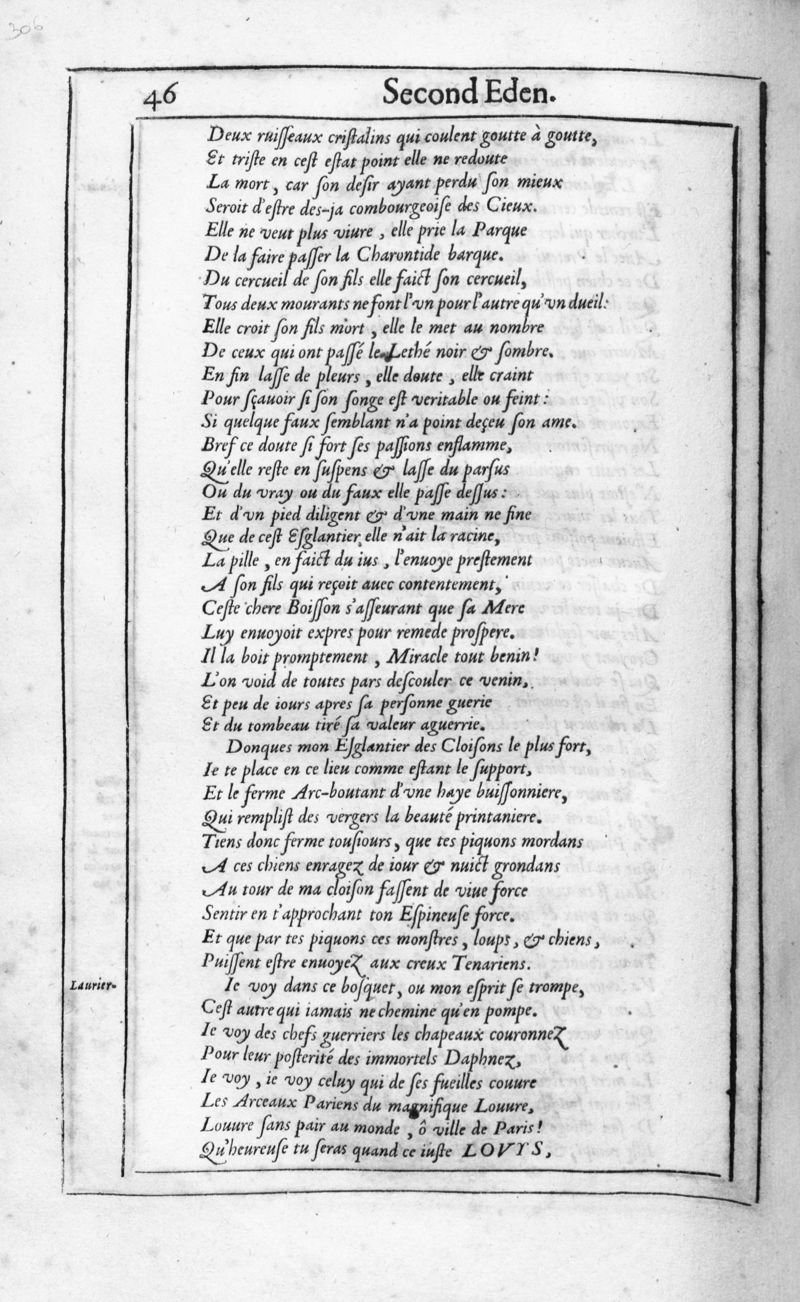 306
46 Second Eden.
Deux ruiſſeaux criſtalins qui coulent goutte à goutte,
Et triſte en ceſt eſtat point elle ne redoute
La mort, car ſon deſir ayant perdu ſon mieux
Seroit d'eſtre des-ja combourgeoiſe des Cieux.
Elle ne veut plus viure, elle prie la Parque
De la faire paſſer la Charontide barque.
Du cercueil de ſon fils elle faict ſon cercueil,
Tous deux mourants ne font l'vn pour l'autre qu'vn dueil:
Elle croit ſon fils mort, elle le met au nombre
De ceux qui ont paſſé le Lethé noir & ſombre.
En fin laſſe de pleurs, elle doute, elle craint
Pour ſçauoir ſi ſon ſonge eſt veritable ou feint:
Si quelque faux ſemblant n'a point deçeu ſon ame.
Bref ce doute ſi fort ſes paſſions enflamme,
Qu'elle reſte en ſuſpens & laſſe du parſus
Ou du vray ou du faux elle paſſe deſſus:
Et d'vn pied diligent & d'vne main ne fine
Que de ceſt Eſglantier elle n'ait la racine,
La pille, en faict du ius, l'enuoye preſtement
A ſon fils qui reçoit auec contentement,
Ceſte chere Boiſſon s'aſſeurant que ſa Mere
Luy enuoyoit expres pour remede proſpere.
Il la boit promptement, Miracle tout benin!
L'on void de toutes pars deſcouler ce venin,
Et peu de iours apres ſa perſonne guerie
Et du tombeau tiré ſa valeur aguerrie.
Donques mon Eſglantier des Cloiſons le plus fort,
Ie te place en ce lieu comme eſtant le ſupport,
Et le ferme Arc-boutant d'vne haye buiſſonniere,
Qui rempliſt des vergers la beauté printaniere.
Tiens donc ferme touſiours, que tes piquons mordans
A ces chiens enragez de iour & nuict grondans
Au tour de ma cloiſon faſſent de viue force
Sentir en t'approchant ton Eſpineuſe force.
Et que par tes piquons ces monſtres, loups, & chiens,
Puiſſent eſtre enuoyez aux creux Tenariens.
Laurier. Ie voy dans ce boſquet, ou mon eſprit ſe trompe,
Ceſt autre qui iamais ne chemine qu'en pompe.
Ie voy des chefs guerriers les chapeaux couronnez
Pour leur poſterité des immortels Daphnez,
Ie voy, ie voy celuy qui de ſes fueilles couure
Les Arceaux Pariens du magnifique Louure,
Louure ſans pair au monde, ô ville de Paris!
Qu'heureuſe tu ſeras quand ce iuſte LOVYS,